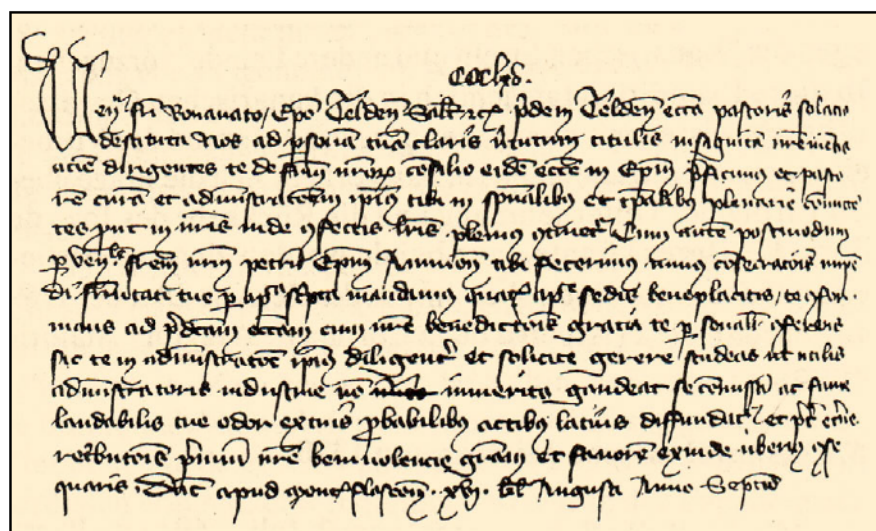 cochs.
Ven fri Bonanato Epo Telden Salt etc pdem Telden eccia pastoris solacio
destituta Nos ad psonam tuam claris virtutum titulis insignitam nre mentis
aciem dirigentes te de frum nror consilio eidem eccie in Epm pfecimus et pasto
rem curam et administratoem ipius tibi in spualibus et tpalibus plenarie comitten
tes put in nris inde cfectis lris plenius continetr Cum autem postmodum
p venlem frem nrm petrum Epm Aumon tibi fecerimus munus consecratois impen
di frnitati tue p aplca scpta mandamus quar aplce sedis beneplacitis te cfor
mans ad pdcam ecciam cum nre benedictois gratia te psonalr cferens
sic te in administratoe ipius diligentr et solicite gerere studeas ut utilis
administratoris industrie no inmerito gaudeat se comissam ac fame
laudabilis tue odor ex tuis pbabilibus actibus latius diffundatr et pter eterne
retbutois pmium nre benivolencie gram et favorem exinde uberius cse
quaris. Dat apud Montflascon. xvi. kl Augusti Anno Septimo